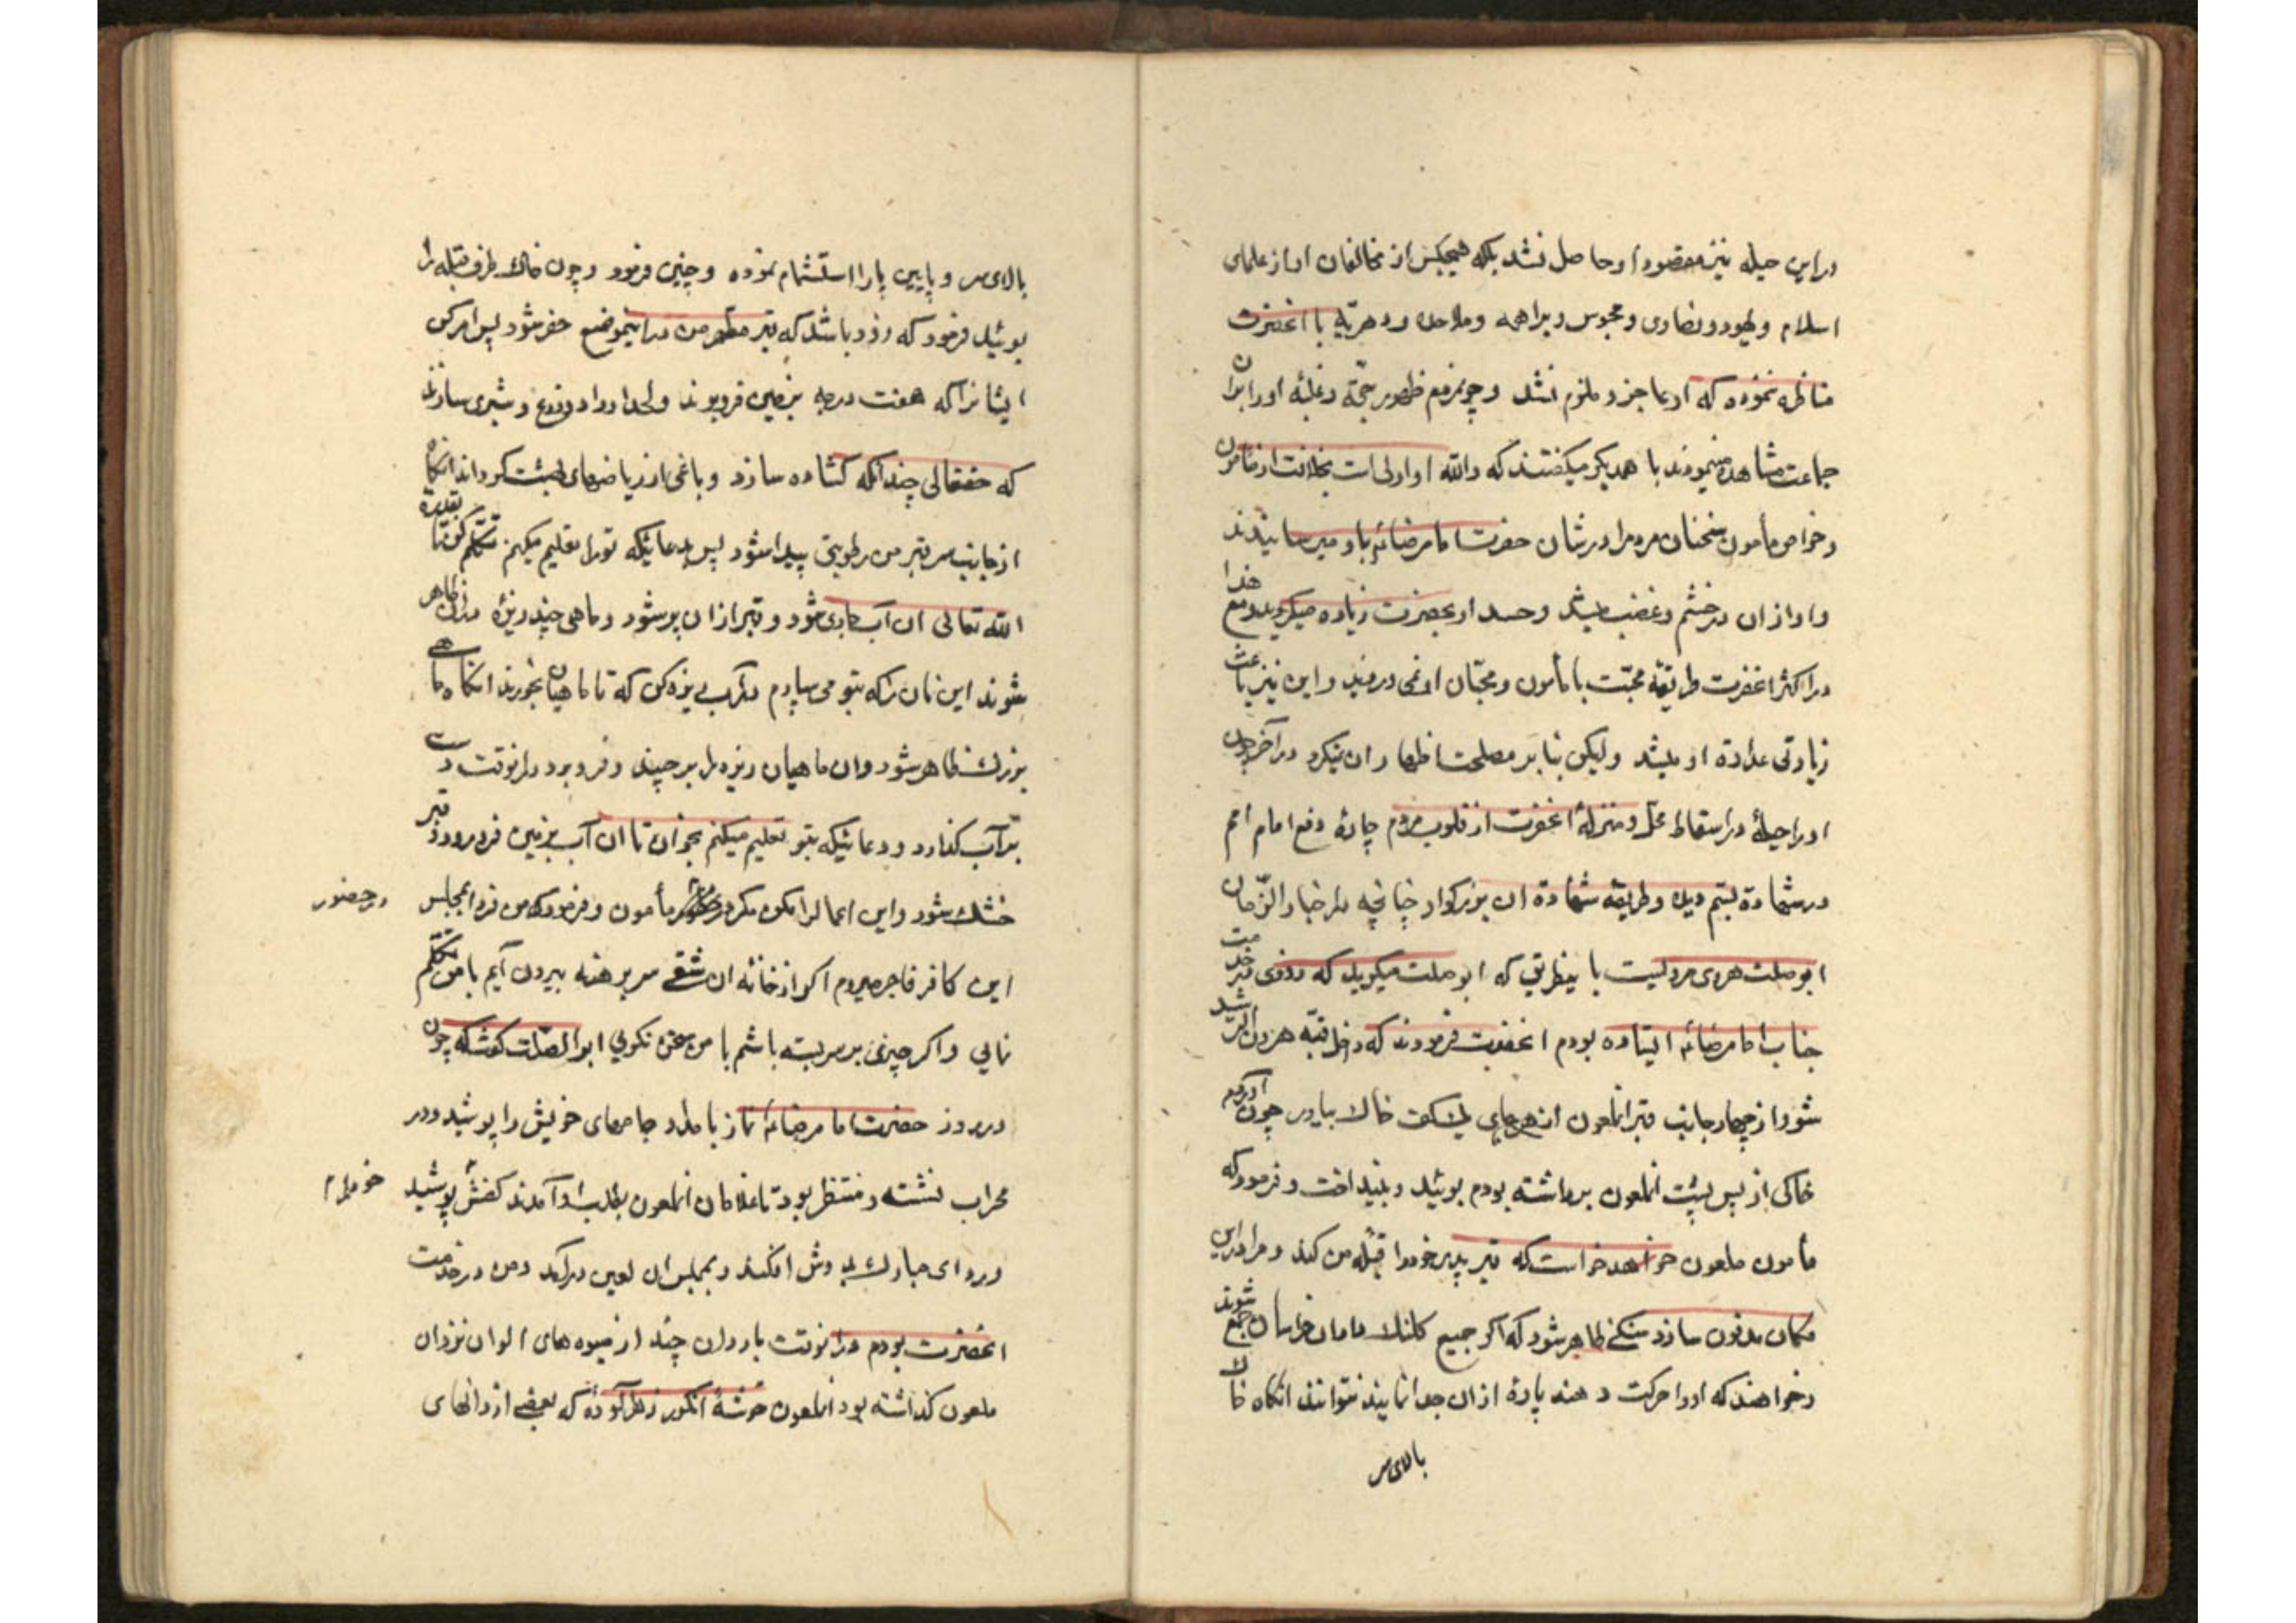 در این حیله نیز مقصود او حاصل نشد بلکه هیچکس از مخالفان او از علمای
اسلام و یهود و نصاری و مجوس و براهمه و ملاحده و دهریه با انحضرت
مناظره ننموده که او عاجز و ملزم نشد و چو مردم ظهور حجّة و غلبهٔ او را بران
جماعت مشاهده مینمودند با همدیکر میکفتند که والله او اولی است بخلافت از مامون
و خواص مأمون سخنان مردم را در شان حضرت امام رضا باو میرسانیدند
و او از ان در خشم و غضب میشد و حسد او بحضرت زیاده میکردید و مع هذا
در اکثر انحضرت طریقهٔ محبّت با مأمون و محبّان او نمی و این نیز باعث
زیادتی عداوة او میشد ولیکن بنابر مصلحت اظهار ان نمیکرد در آخر چون
او را حیلهٔ در اسقاط محل و منزلهٔ انحضرت از قلوب مردم چارهٔ دفع امام امم
در شهادة دید و طریقهٔ شهادة ان بزرکوار چنانچه در اخبار الزّمان
ابو صلت هروی مرویست باینطریق که ابو صلت میکوید که روزی در خدمت
جناب امام رضا ایستاده بودم انحضرت فرمودند که داخل قبّه هرون الرشید
شو و از چهار جانب قبر انملعون از هر جای یک کف خاک بیاور چون آوردم
خاکی از پس پشت انملعون برداشته بودم بوئید و بینداخت و فرمود که
مأمون ملعون خواهد خواست که قبر پدر خود را قبلهٔ من کند و مرا در این
مکان مدفون سازد سنکی ظاهر شود که اکر جمیع کلنک داران خراسان جمع شوند
و خواهند که او را حرکت دهند پارهٔ از ان جدا نمایند نتوانند انکاه خاک
بالای سر
بالای سر و پایین پا را استشمام نموده و چنین فرمود و چون خاک طرف قبله را
بوئید فرمود که زود باشد که قبر مطهر من در اینموضع حفر شود پس امر کن
ایشانرا که هفت درجه بزمین فرو برند و لحد او را دو ذرع و شبری سازند
که حقتعالی چندانکه کشاده سازد و باغی از ریاضهای بهشت کرداند انکاه
از جانب سر قبر من رطوبتی پیدا شود پس بدعائیکه تو را تعلیم میکنم تکلم کن تا بقدرة
الله تعالی ان آب جاری شود و قبر از ان پر شود و ماهی چند ریزه در ان ظاهر
شوند این نان را که بتو می سپارم در آب ریزه کن که تا ماهیان بخورند انکاه ماهی
بزرک ظاهر شود و ان ماهیان ریزه را بر چیند و فرو برد در انوقت دست
بر آب کذار و دعائیکه بتو تعلیم میکنم بخوان تا ان آب بزمین فرو رود و قبر
خشک شود و این اعمال را مکن مکر در حضور مأمون و فرمود که من فردا بمجلس
در حضور
این کافر فاجر میروم اکر از خانه ان شقی سر برهنه بیرون آیم با من تکلّم
نمایی و اکر چیزی بر سر بسته باشم با من سخن نکویی ابو الصّلت کفت که چون
در روز حضرت امام رضا نماز بامداد جامهای خویش را پوشید و در
محراب نشسته و منتظر بود تا غلامان انملعون بطلب او آمدند کفش پوشید
خود را
و ردای مبارک بدوش افکند و بمجلس ان لعین درآمد و من در خدمت
انحضرت بودم در انوقت چند از میوه های الوان نزد ان
ملعون کذاشته بود انملعون خوشهٔ انکور زهرآلوده که بعضی از دانهای